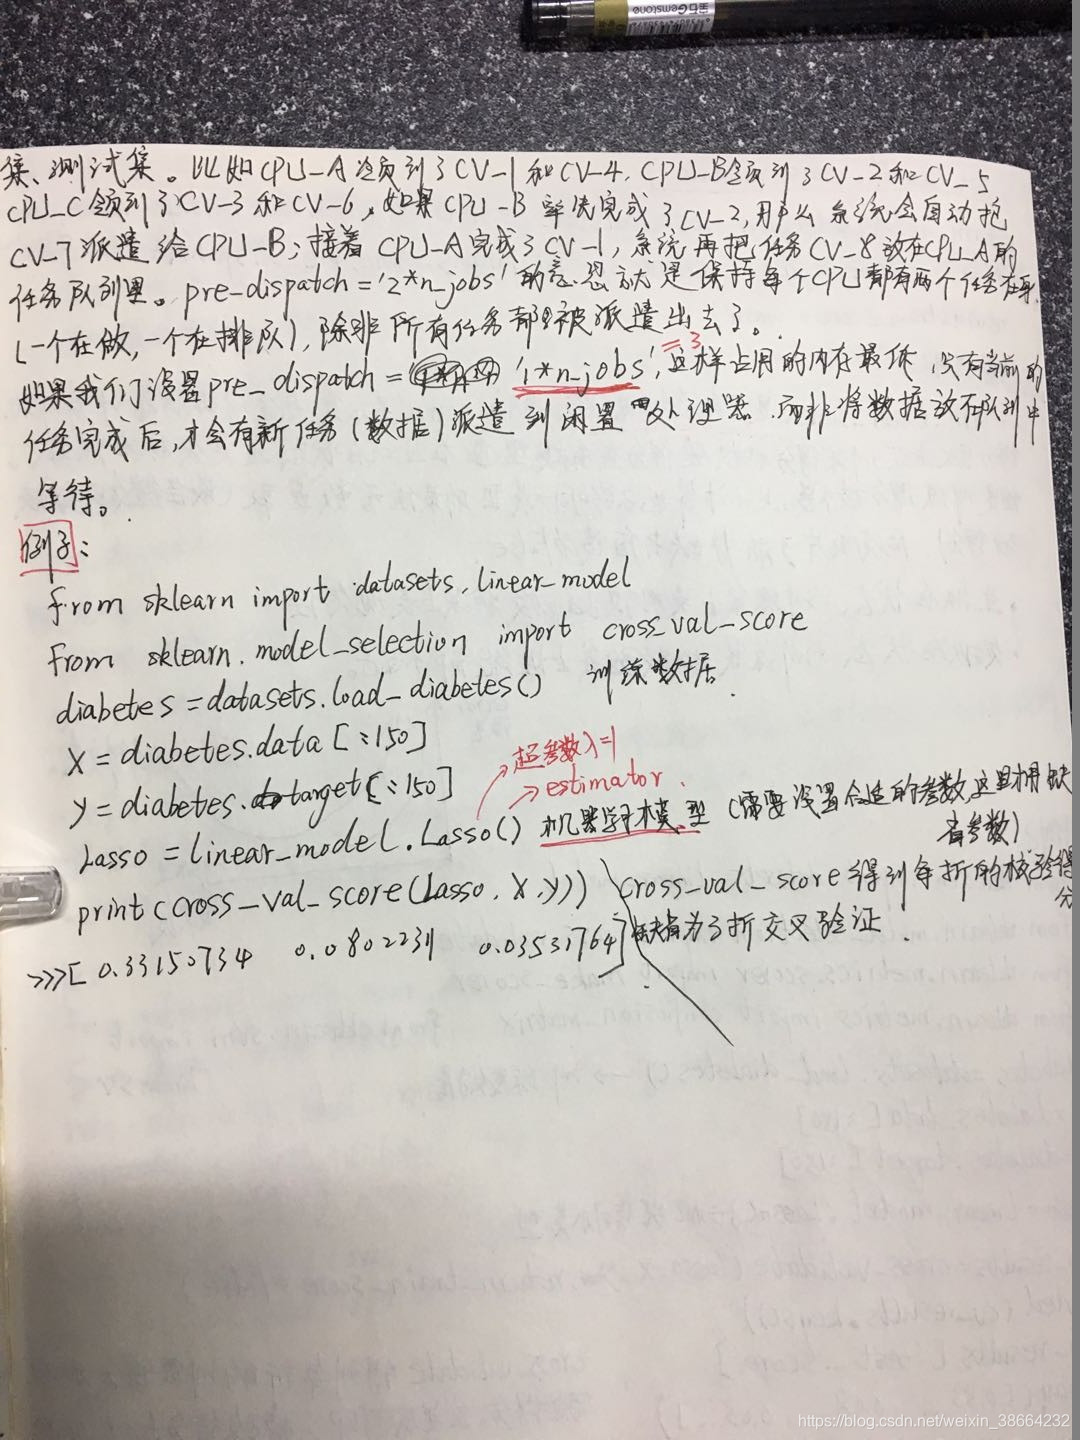 宝石Gemstone
集、测试集。比如CPU_A领到了CV_1和CV_4, CPU_B领到了CV_2和CV_5
CPU_C领到了CV-3和CV-6,如果CPU_B率先完成了CV_2,那么系统会自动把
CV_7派遣给CPU_B;接着CPU_A完成了CV_1,系统再把任务CV_8放在CPU_A的
任务队列里。pre_dispatch='2*n_jobs'的意思就是保持每个CPU都有两个任务在身
(一个在做,一个在排队),除非所有任务都被派遣出去了。
=3
如果我们设置pre_dispatch='1*n_jobs',这样占用的内存最低,只有当前的
任务完成后,才会有新任务(数据)派遣到闲置的处理器,而非将数据放在队列中
等待。
例子:
from sklearn import datasets, linear_model
from sklearn.model_selection import cross_val_score
diabetes = datasets.load_diabetes() 训练数据.
X = diabetes.data[:150]
超参数λ=1
y = diabetes.target[:150]
estimator.
Lasso = linear_model.Lasso() 机器学习模型(需要设置合适的参数,这里用缺
省参数)
print(cross_val_score(Lasso, X, y)) cross_val_score得到每折的校验得
分
>>>[ 0.33150734 0.08022311 0.03531764] 缺省为3折交叉验证.
https://blog.csdn.net/weixin_38664232